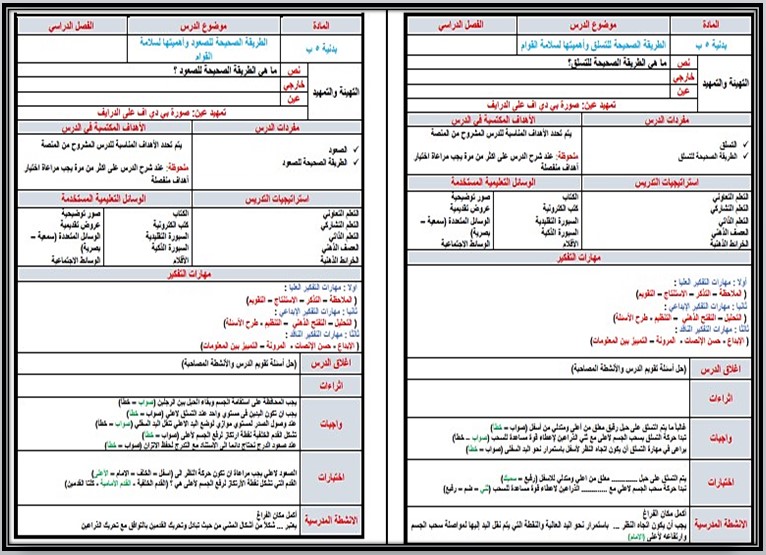 المادة	موضوع الدرس	الفصل الدراسي
بدنية ٥ ب	الطريقة الصحيحة للتسلق وأهميتها لسلامة القوام
التهيئة والتمهيد
نص	ما هي الطريقة الصحيحة للتسلق؟
خارجي
عين
تمهيد عين: صورة بي دي اف على الدرايف
مفردات الدرس	الأهداف المكتسبة في الدرس
✓ التسلق
✓ الطريقة الصحيحة للتسلق
يتم تحدد الأهداف المناسبة للدرس المشروح من المنصة
ملحوظة: عند شرح الدرس على أكثر من مرة يجب مراعاة اختيار
أهداف منفصلة
استراتيجيات التدريس	الوسائل التعليمية المستخدمة
التعلم التعاوني	الكتاب	صور توضيحية
التعلم التشاركي	كتب الكترونية	عروض تقديمية
التعلم الذاتي	السبورة التقليدية	الوسائل المتعددة (سمعية –
العصف الذهني	السبورة الذكية	بصرية)
الخرائط الذهنية	الأقلام	الوسائط الاجتماعية
مهارات التفكير
أولا : مهارات التفكير العليا :
( الملاحظة – التذكر – الاستنتاج – التقويم)
ثانيا : مهارات التفكير الإبداعي :
( التحليل – التفتح الذهني – التنظيم - طرح الأسئلة)
ثالثا : مهارات التفكير الناقد :
( الإبداع - حسن الإنصات - المرونة – التمييز بين المعلومات)
اغلاق الدرس	(حل أسئلة تقويم الدرس والأنشطة المصاحبة)
اثراءات
واجبات
غالباً ما يتم التسلق على حبل رفيق معلق من أعلي ومتدلي من أسفل (صواب – خطأ)
تبدا حركة التسلق بسحب الجسم لاعلي مع ثني الذراعين لاعطاء قوة مساعدة للسحب (صواب – خطأ)
يراعى في مهارة التسلق أن يكون اتجاه النظر لأسفل باستمرار نحو اليد السفلي (صواب – خطأ)
اختبارات
يتم التسلق على حبل ............ معلق من اعلي ومتدلي للاسفل (رفيع – سميك)
تبدا حركة سحب الجسم لاعلي مع ............ الذراعين لاعطاء قوة مساعدة للسحب (ثني – ضم – رفع)
الانشطة المدرسية
أكمل مكان الفراغ
يجب أن يكون اتجاه النظر ... باستمرار نحو اليد العالية والنقطة التي يتم نقل اليد إليها لمواصلة سحب الجسم
وارتفاعه لأعلى (الامام)
المادة	موضوع الدرس	الفصل الدراسي
بدنية ٥ ب	الطريقة الصحيحة للصعود وأهميتها لسلامة
القوام
التهيئة والتمهيد
نص	ما هي الطريقة الصحيحة للصعود ؟
خارجي
عين
تمهيد عين: صورة بي دي اف على الدرايف
مفردات الدرس	الأهداف المكتسبة في الدرس
✓ الصعود
✓ الطريقة الصحيحة للصعود
يتم تحدد الأهداف المناسبة للدرس المشروح من المنصة
ملحوظة: عند شرح الدرس على اكثر من مرة يجب مراعاة اختيار
أهداف منفصلة
استراتيجيات التدريس	الوسائل التعليمية المستخدمة
التعلم التعاوني	الكتاب	صور توضيحية
التعلم التشاركي	كتب الكترونية	عروض تقديمية
التعلم الذاتي	السبورة التقليدية	الوسائل المتعددة (سمعية –
العصف الذهني	السبورة الذكية	بصرية)
الخرائط الذهنية	الأقلام	الوسائط الاجتماعية
مهارات التفكير
أولا : مهارات التفكير العليا :
( الملاحظة – التذكر – الاستنتاج – التقويم)
ثانيا : مهارات التفكير الإبداعي :
( التحليل – التفتح الذهني – التنظيم - طرح الأسئلة)
ثالثا : مهارات التفكير الناقد :
( الإبداع - حسن الإنصات - المرونة – التمييز بين المعلومات)
اغلاق الدرس	(حل أسئلة تقويم الدرس والأنشطة المصاحبة)
اثراءات
واجبات
يجب المحافظة على استقامة الجسم وبقاء الحبل بين الرجلين (صواب – خطأ)
يجب ان تكون اليدين في مستوي واحد عند التسلق لاعلي (صواب – خطأ)
عند وصول الصدر لمستوي موازي لوضع اليد الاعلي تنقل اليد السفلي (صواب – خطأ)
تشكل القدم الخلفية نقطة ارتكاز لرفع الجسم لأعلى (صواب – خطأ)
عند صعود الدرج تحتاج دائما الى الاستناد مع التدرج لحفظ الاتزان (صواب – خطأ)
اختبارات
الصعود لاعلي يجب مراعاة ان تكون حركة النظر الى (اسفل - الخلف – الامام – لأعلى)
القدم التي تشكل نقطة الأرتكاز لرفع الجسم لاعلى هي ؟ ( القدم الخلفية - القدم الأمامية - كلتا القدمين)
الانشطة المدرسية
أكمل مكان الفراغ
يعتبر ... شكلاً من أشكال المشي من حيث تبادل وتحريك القدمين بالتوافق مع تحريك الذراعين